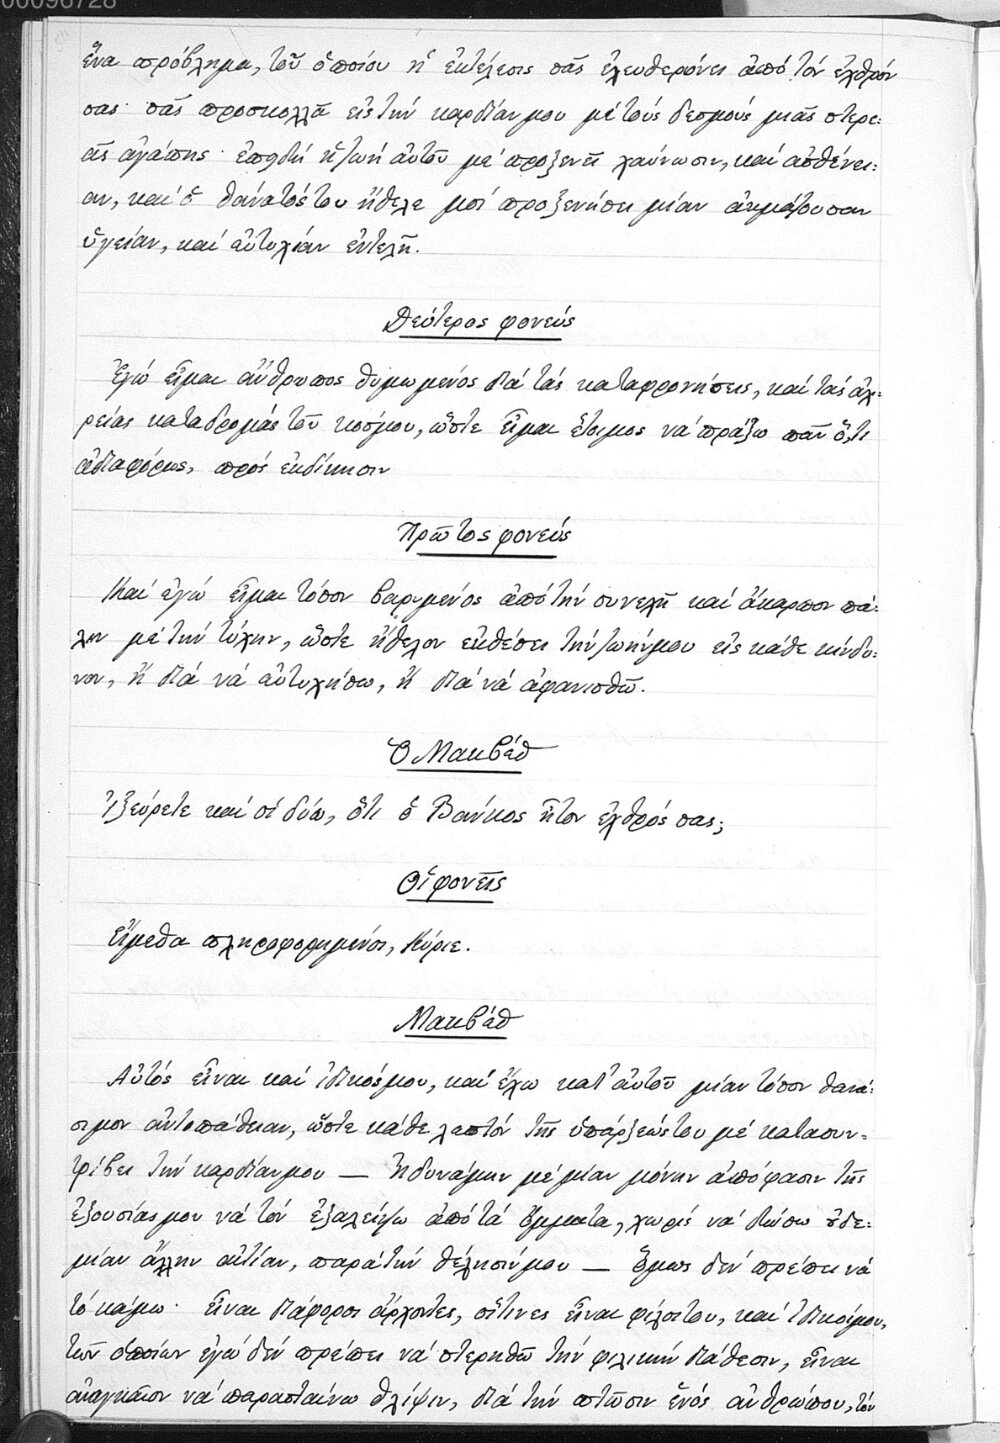 00096728
ἕνα πρόβλημα, τοῦ ὁποίου ἡ ἐκτέλεσις σᾶς ἐλευθερόνει ἀπὸ τὸν ἐχθρόν
σας· σᾶς προσκολλᾶ εἰς τὴν καρδίαν μου μὲ τοὺς δεσμοὺς μιᾶς στερε-
ᾶς ἀγάπης· ἐπειδὴ ἡ ζωὴ αὐτοῦ μὲ προξενεῖ χαύνωσιν, καὶ ἀσθένει-
αν, καὶ ὁ θάνατός του ἤθελε μοὶ προξενήσει μίαν ἀκμάζουσαν
ὑγείαν, καὶ εὐτυχίαν ἐντελῆ.
Δεύτερος φονεύς
Ἐγὼ εἶμαι ἄνθρωπος θυμωμένος διὰ τὰς καταφρονήσεις, καὶ τὰς ἀχ-
ρείας καταδρομὰς τοῦ κόσμου, ὥστε εἶμαι ἕτοιμος νὰ πράξω πᾶν ὅ,τι
ἀδιαφόρως, πρὸς ἐκδίκησιν
Πρῶτος φονεύς
Καὶ ἐγὼ εἶμαι τόσον βαρυμένος ἀπὸ τὴν συνεχῆ καὶ ἄκαρπον πά-
λην μὲ τὴν τύχην, ὥστε ἤθελον ἐκθέσει τὴν ζωήν μου εἰς κάθε κίνδυ-
νον, ἢ διὰ νὰ εὐτυχήσω, ἢ διὰ νὰ ἀφανισθῶ.
Ὁ Μακβὲθ
Ἠξεύρετε καὶ οἱ δύω, ὅτι ὁ Βάνκος ἦτον ἐχθρός σας;
Οἱ φονεῖς
Εἴμεθα πληροφορημένοι, Κύριε.
Μακβὲθ
Αὐτὸς εἶναι καὶ ἰδικός μου, καὶ ἔχω κατ' αὐτοῦ μίαν τόσον θανά-
σιμον ἀντιπάθειαν, ὥστε κάθε λεπτὸν τῆς ὑπάρξεώς του μὲ κατασυν-
τρίβει τὴν καρδίαν μου — Ἠδυνάμην μὲ μίαν μόνην ἀπόφασιν τῆς
ἐξουσίας μου νὰ τὸν ἐξαλείψω ἀπὸ τὰ ὄμματα, χωρὶς νὰ δώσω οὐδε-
μίαν ἄλλην αἰτίαν, παρὰ τὴν θέλησίν μου — ὅμως δὲν πρέπει νὰ
τὸ κάμω· εἶναι διάφοροι ἄρχοντες, οἵτινες εἶναι φίλοι του, καὶ ἰδικοί μου,
τῶν ὁποίων ἐγὼ δὲν πρέπει νὰ στερηθῶ τὴν φιλικὴν διάθεσιν, εἶναι
ἀναγκαῖον νὰ παρασταίνω θλίψιν, διὰ τὴν πτῶσιν ἑνὸς ἀνθρώπου, τὸν